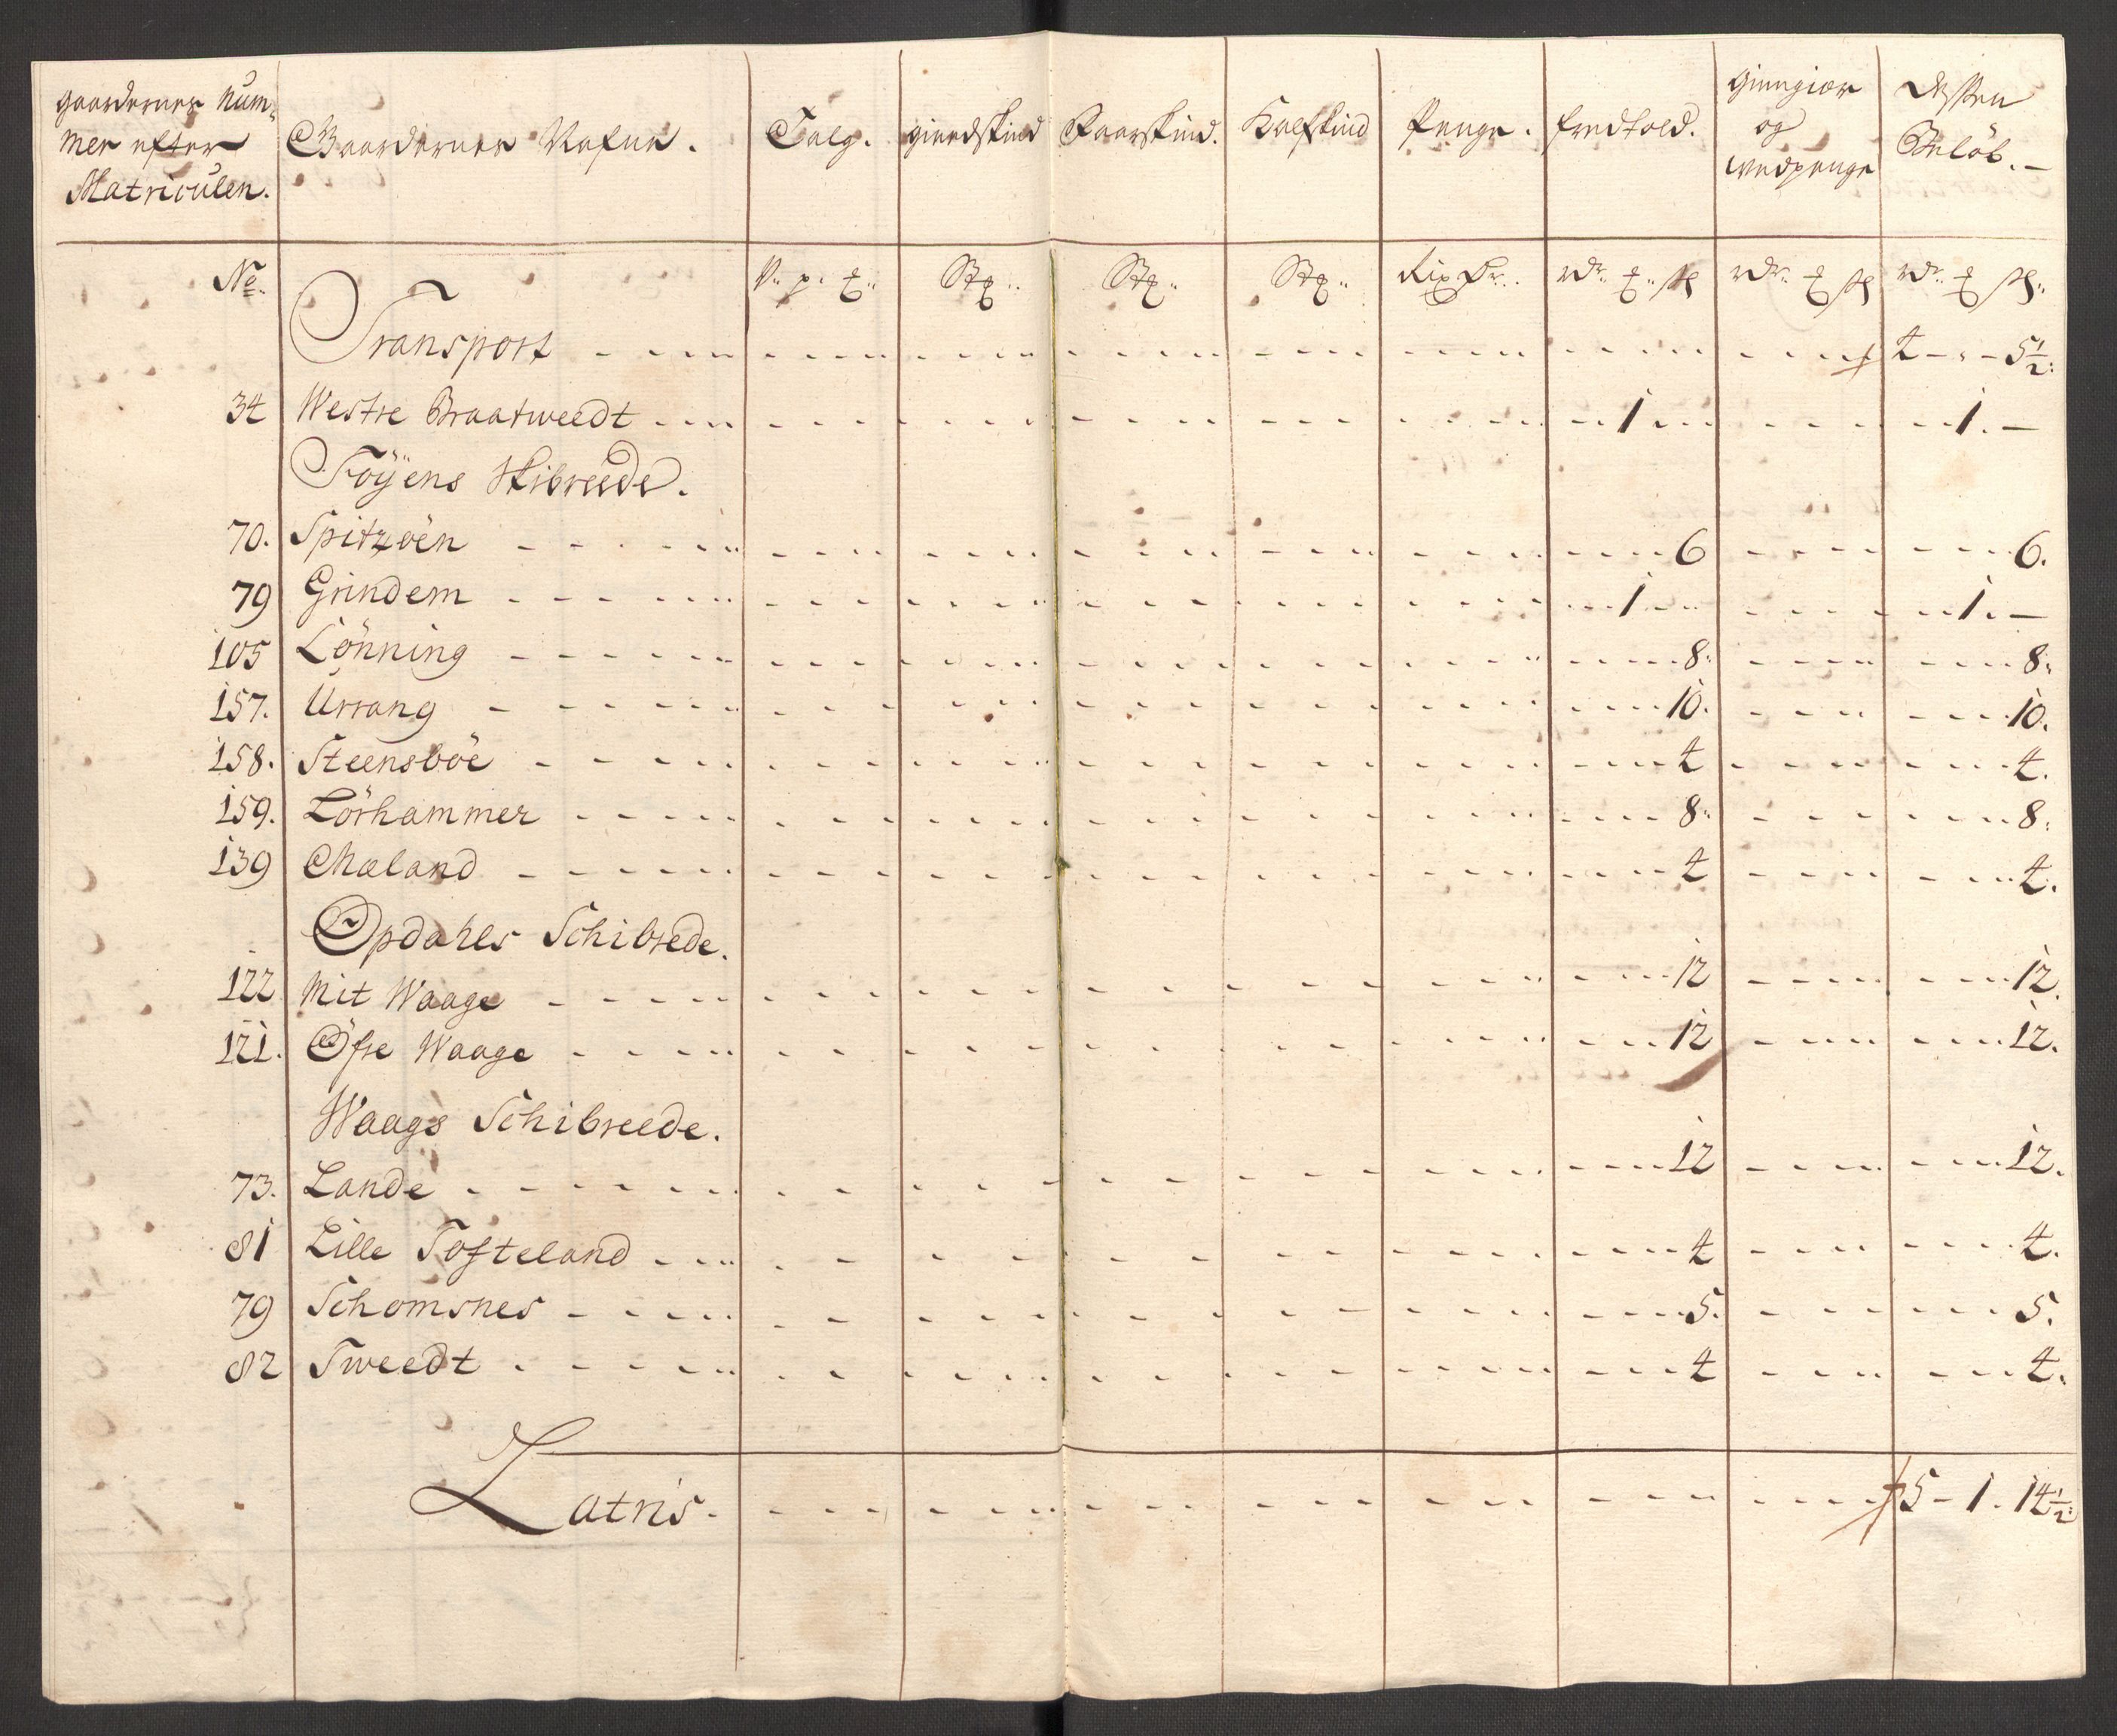 gaardernes Num-
mer efter
Matriculen.
Gaardernes Nafne.
Talg.
giedskind
Faarskind.
Kalfskind
Penge.
fredtold.
giengiær
og
wedpenge
Dessen
Beløb. —
No.
Transport - - - - 4 - " - 5 1/2:
34 Westre Braatweedt - - - 1 - - - 1. —
Föÿens Skibreede.
70. Spitzöen - - - 6 - - - 6.
79 Grindem - - - 1 - - - 1. —
105 Lönning - - - 8: - - - 8:
157. Urrang - - - 10. - - - 10.
158. Steensböe - - - 4 - - - 4.
159. Lörhammer - - - 8: - - - 8:
139 Mæland - - - 4 - - - 4.
Opdahls Schibrede.
122 Mit Waage - - - 12 - - - 12.
121. Öfre Waage - - - 12 - - - 12.
Waags Schibreede.
73. Lande - - - 12 - - - 12.
81 Lille Tofteland - - - 4 - - - 4.
79 Schomsnes - - - 5. - - - 5.
82 Tweedt - - - 4 - - - 4.
Latris. - - - 5 - 1. 14 1/2: